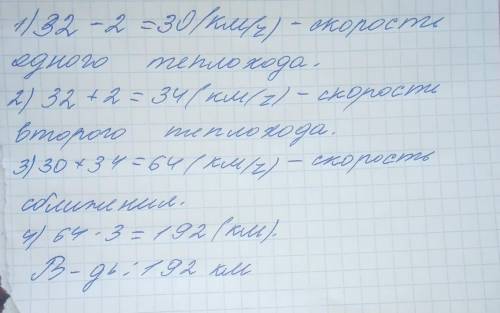 1) 32 - 2 = 30 (км/г) - скорость
одного теплохода.
2) 32 + 2 = 34 (км/г) - скорость
второго теплохода.
3) 30 + 34 = 64 (км/г) - скорость
сближения.
4) 64 · 3 = 192 (км).
В-дь: 192 км